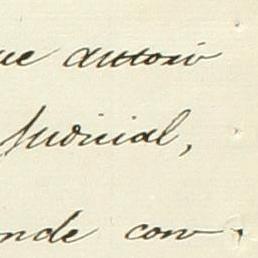 ue autori
Judicial,
nde con